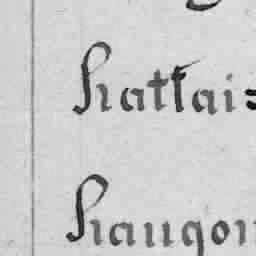 hattai=
haugon